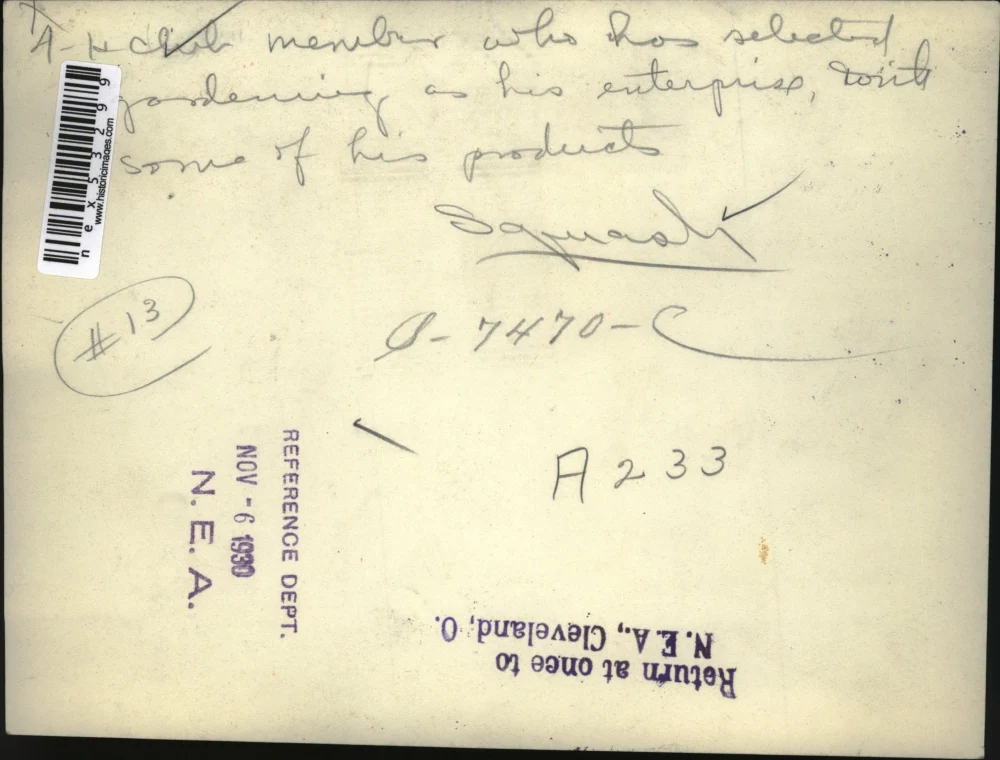 4-H club member who has selected
gardening as his enterprise, with
some of his products
Squash
nex53299
www.historicimages.com
#13
7470-C
A233
REFERENCE DEPT.
NOV - 6 1930
N. E. A.
Return at once to
N. E. A., Cleveland, O.